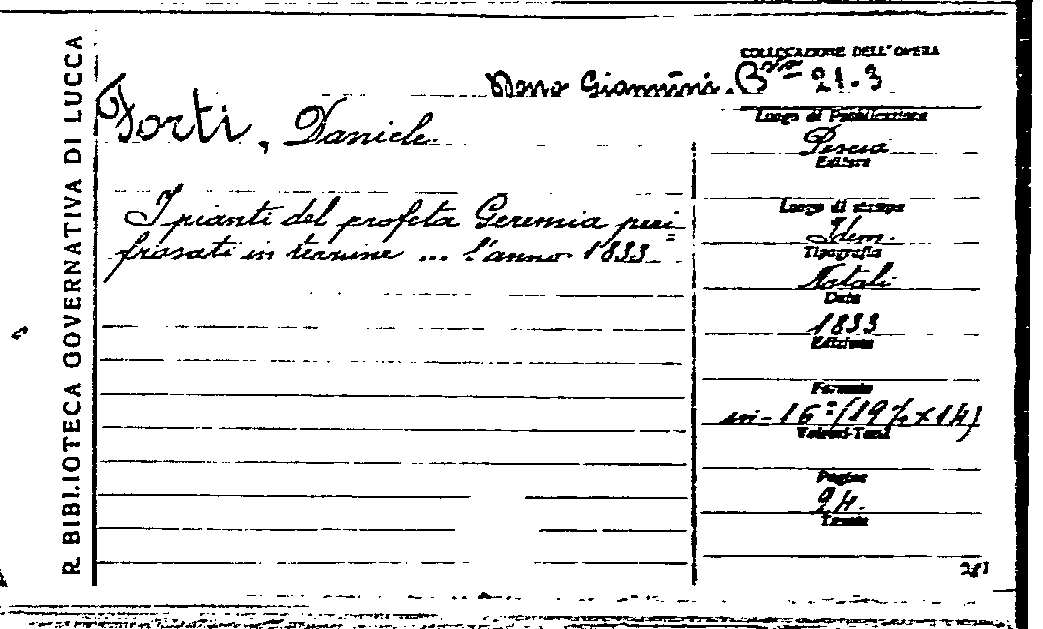 R. BIBLIOTECA GOVERNATIVA DI LUCCA
COLLOCAZIONE DELL'OPERA
Dono Giannini. B.ta 21.3
Forti, Daniele
I pianti del profeta Geremia peri=
frasati in terzine ... l'anno 1833
Luogo di Pubblicazione
Pescia
Editore
Luogo di stampa
Idem.
Tipografia
Natali
Data
1833
Edizione
Formato
in-16°(19½x14)
Volumi-Tomi
Pagine
24.
Tavole